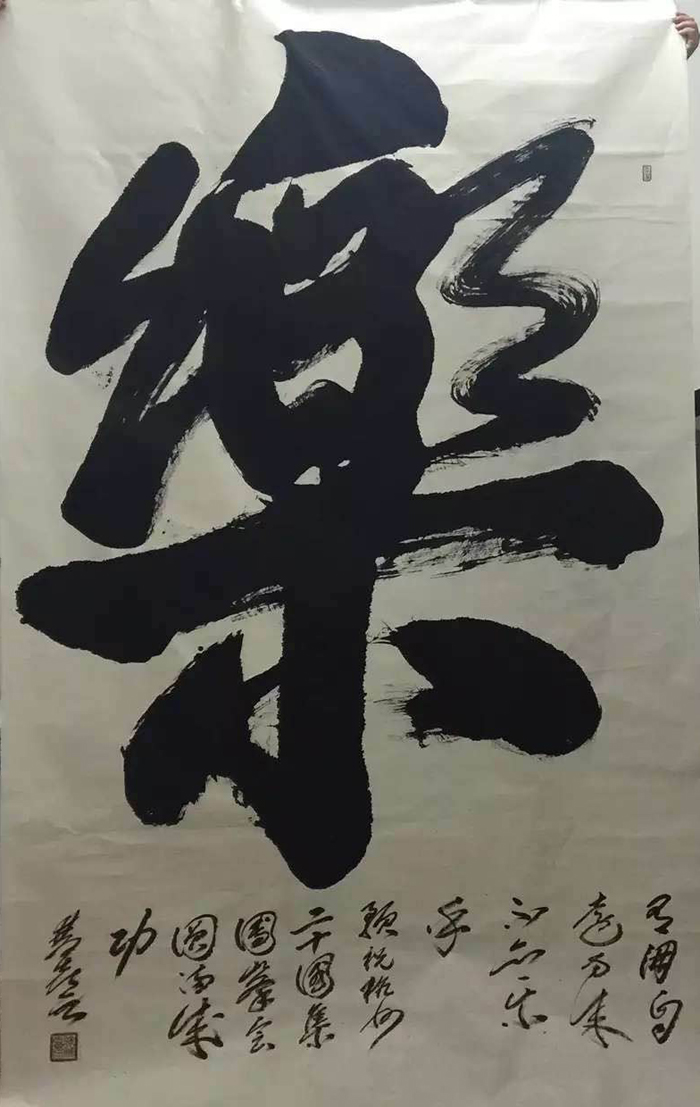 樂
有朋自
遠方來
不亦樂
乎
預祝杭州
二十國集
團峯会
圓滿成
功